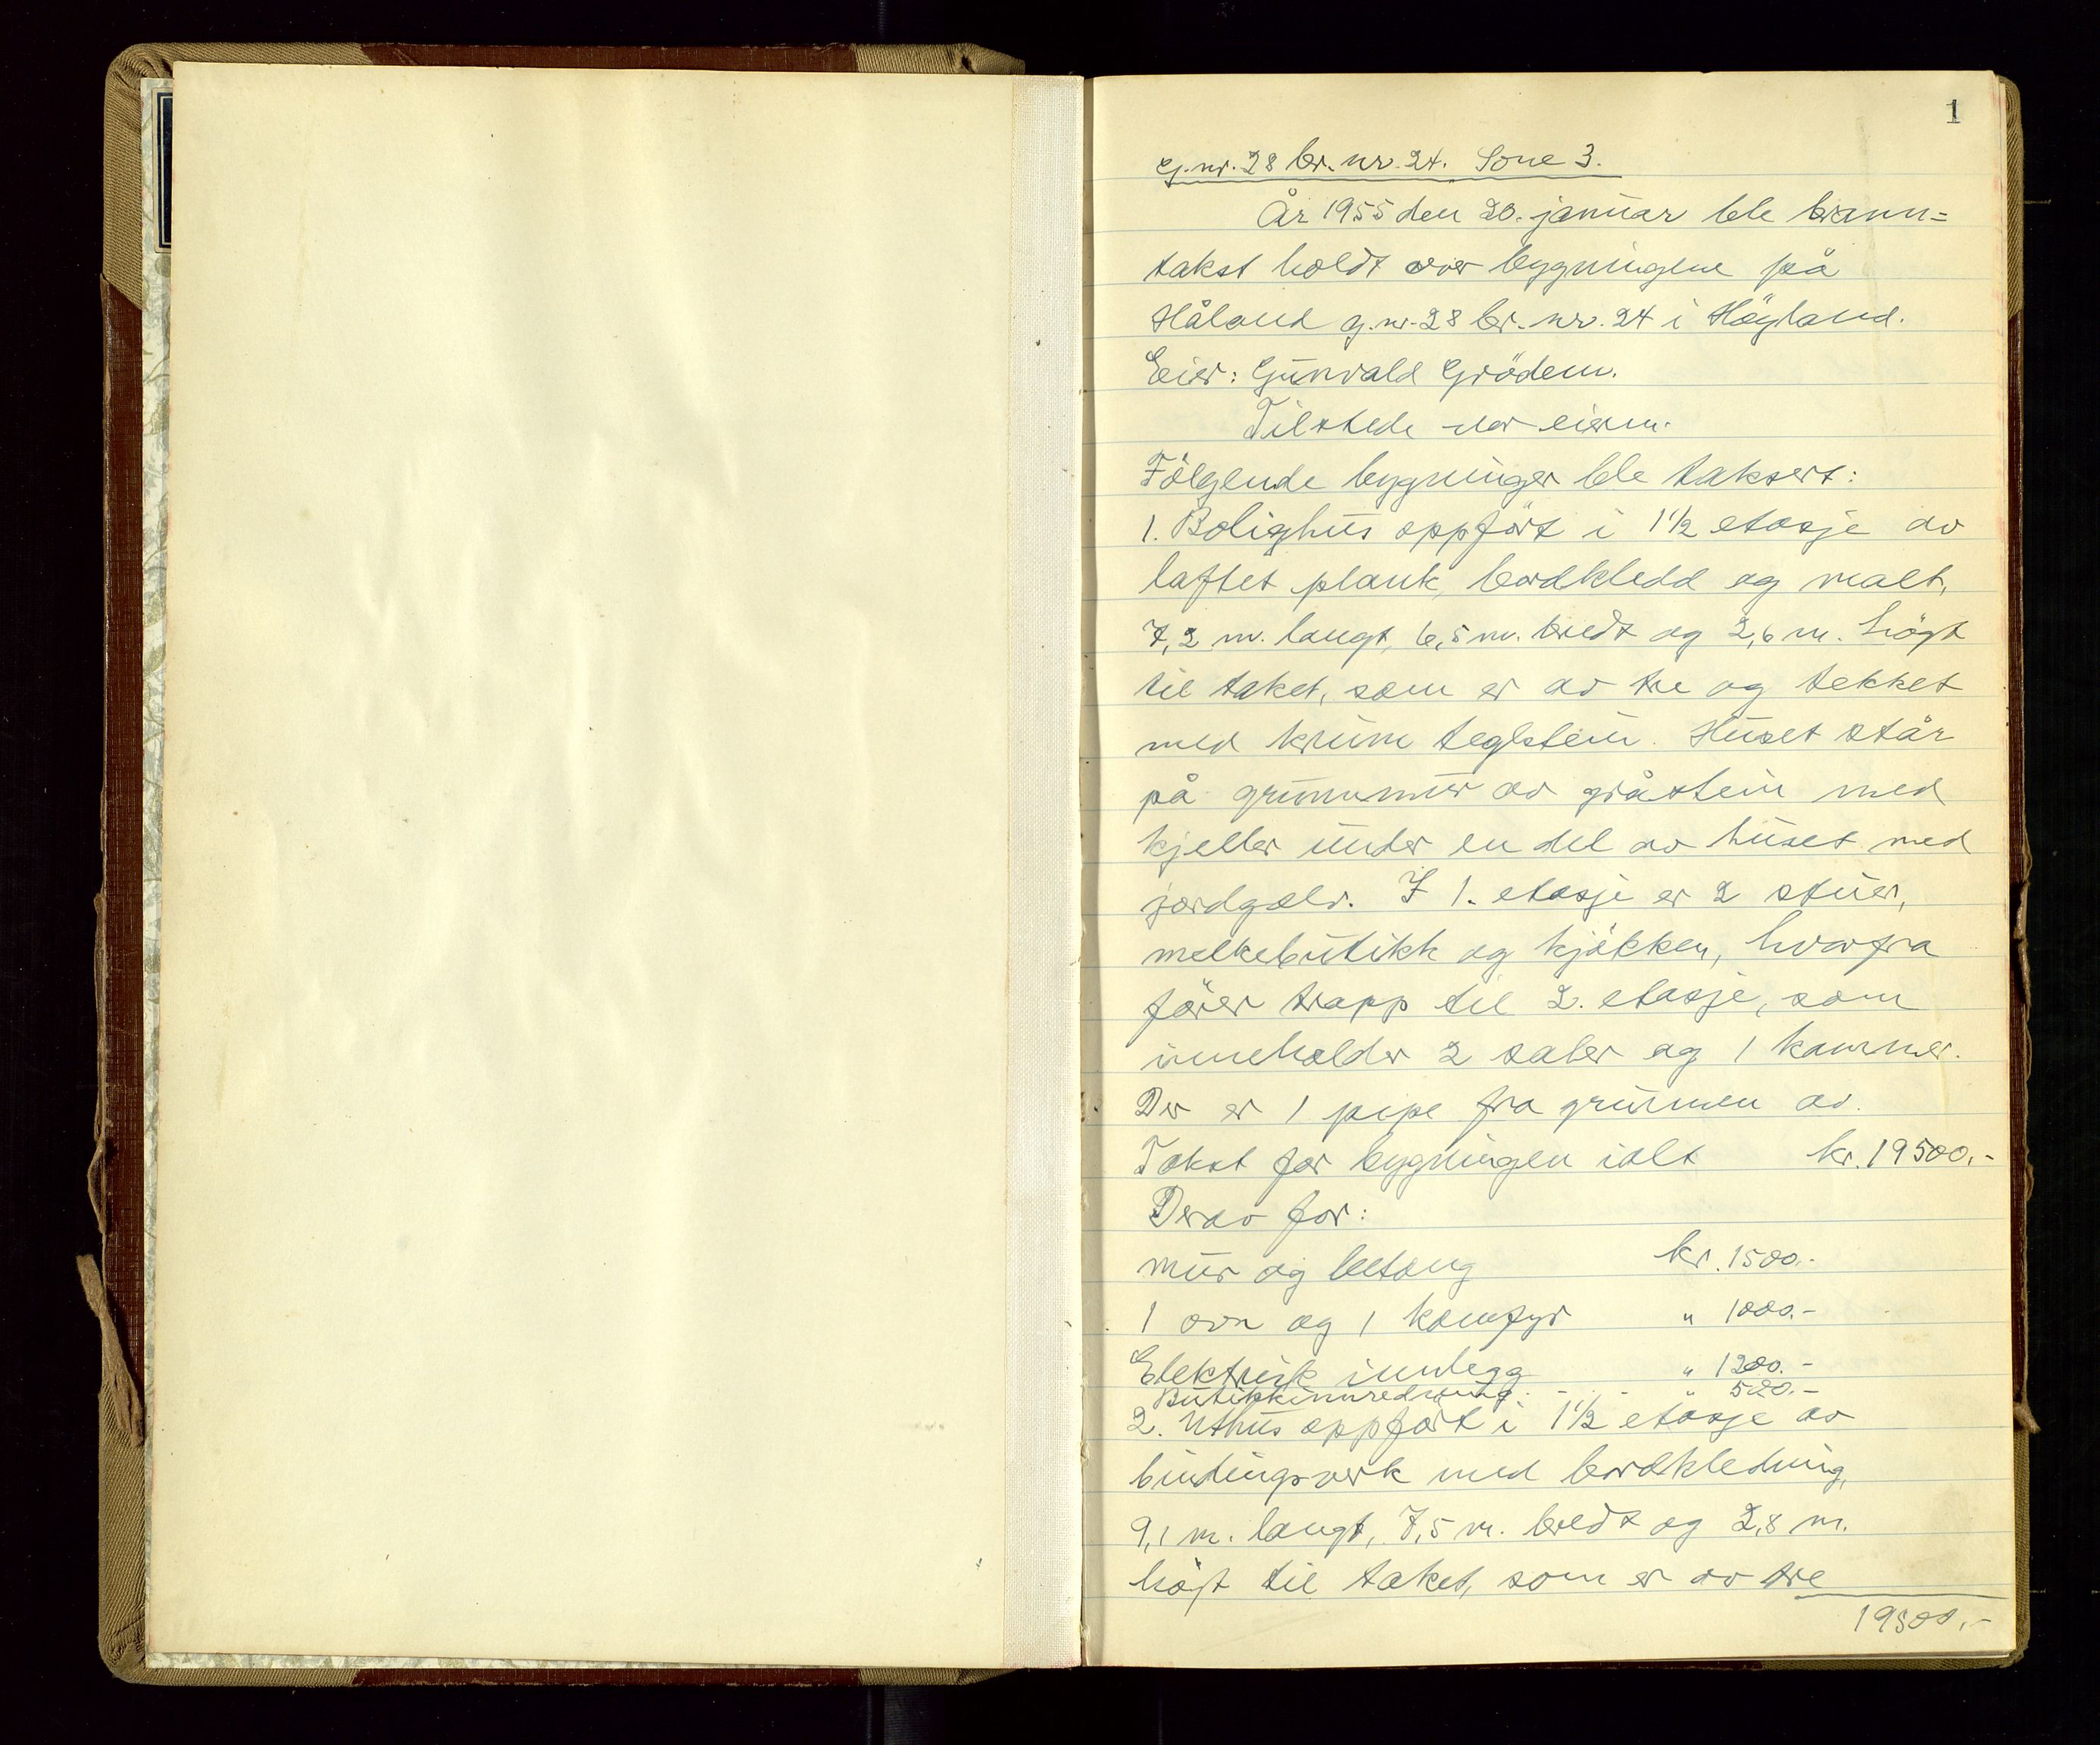 1
G.nr. 28 br. nr. 24. Sone 3.
År 1955 den 20. januar ble brann=
takst holdt over bygningene på
Håland g.nr. 28 br. nr. 24 i Högland.
Eier: Gunvald Grödem.
Tilstede var eieren.
Fölgende bygninger ble taksert:
1. Bolighus oppfört i 1 1/2 etasje av
laftet plank, bordkledd og malt,
7,2 m. langt, 6,5 m. bredt og 2,6 m. högt
til taket, som er av tre og tekket
med krum teglstein. Huset står
på grunnmur av gråstein med
kjeller under en del av huset med
jordgolv. I 1. etasje er 2 stuer,
melkebutikk og kjökken, hvorfra
förer trapp til 2. etasje, som
inneholder 2 saler og 1 kammer.
Der er 1 pipe fra grunnen av.
Takst for bygningen ialt kr. 19500.-
Derav for:
mur og betong kr. 1500.-
1 ovn og 1 komfyr " 1000.-
Elektrisk innlegg " 1200.-
Butikkinnredning. - . - " 500.-
2. Uthus oppfört i 1 1/2 etasje av
bindingsverk med bordkledning,
9,1 m. langt, 7,5 m. bredt og 2,8 m.
högt til taket, som er av tre
19500.-